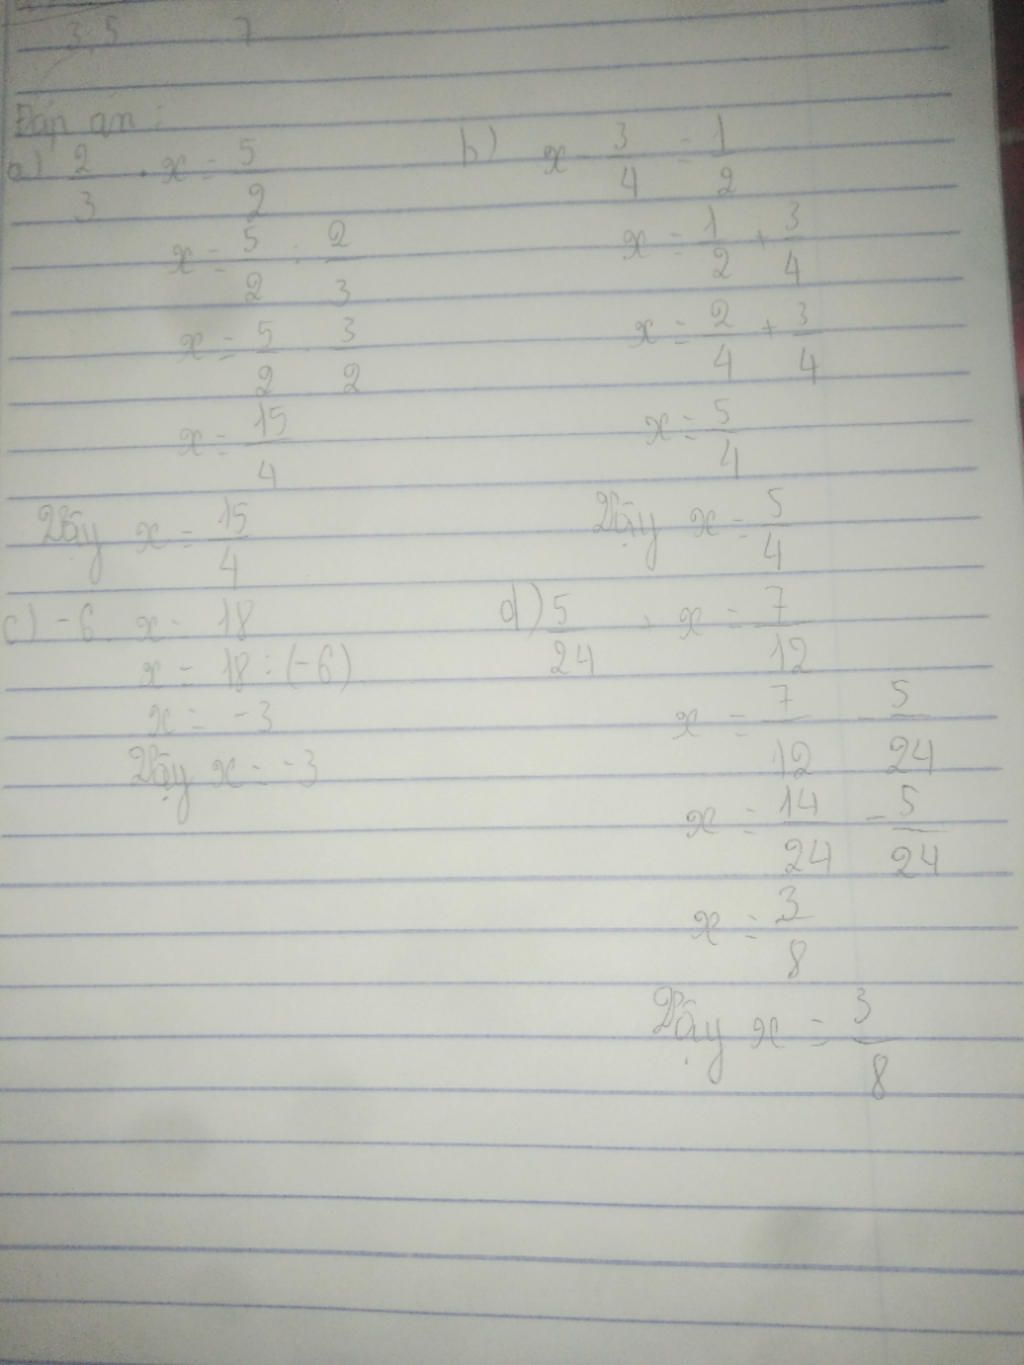 3,5 7
Đáp án :
a) 2/3 . x = 5/2
x = 5/2 : 2/3
x = 5/2 . 3/2
x = 15/4
Vậy x = 15/4
b) x - 3/4 = 1/2
x = 1/2 + 3/4
x = 2/4 + 3/4
x = 5/4
Vậy x = 5/4
c) -6 . x = 18
x = 18 : (-6)
x = -3
Vậy x = -3
d) 5/24 + x = 7/12
x = 7/12 - 5/24
x = 14/24 - 5/24
x = 3/8
Vậy x = 3/8